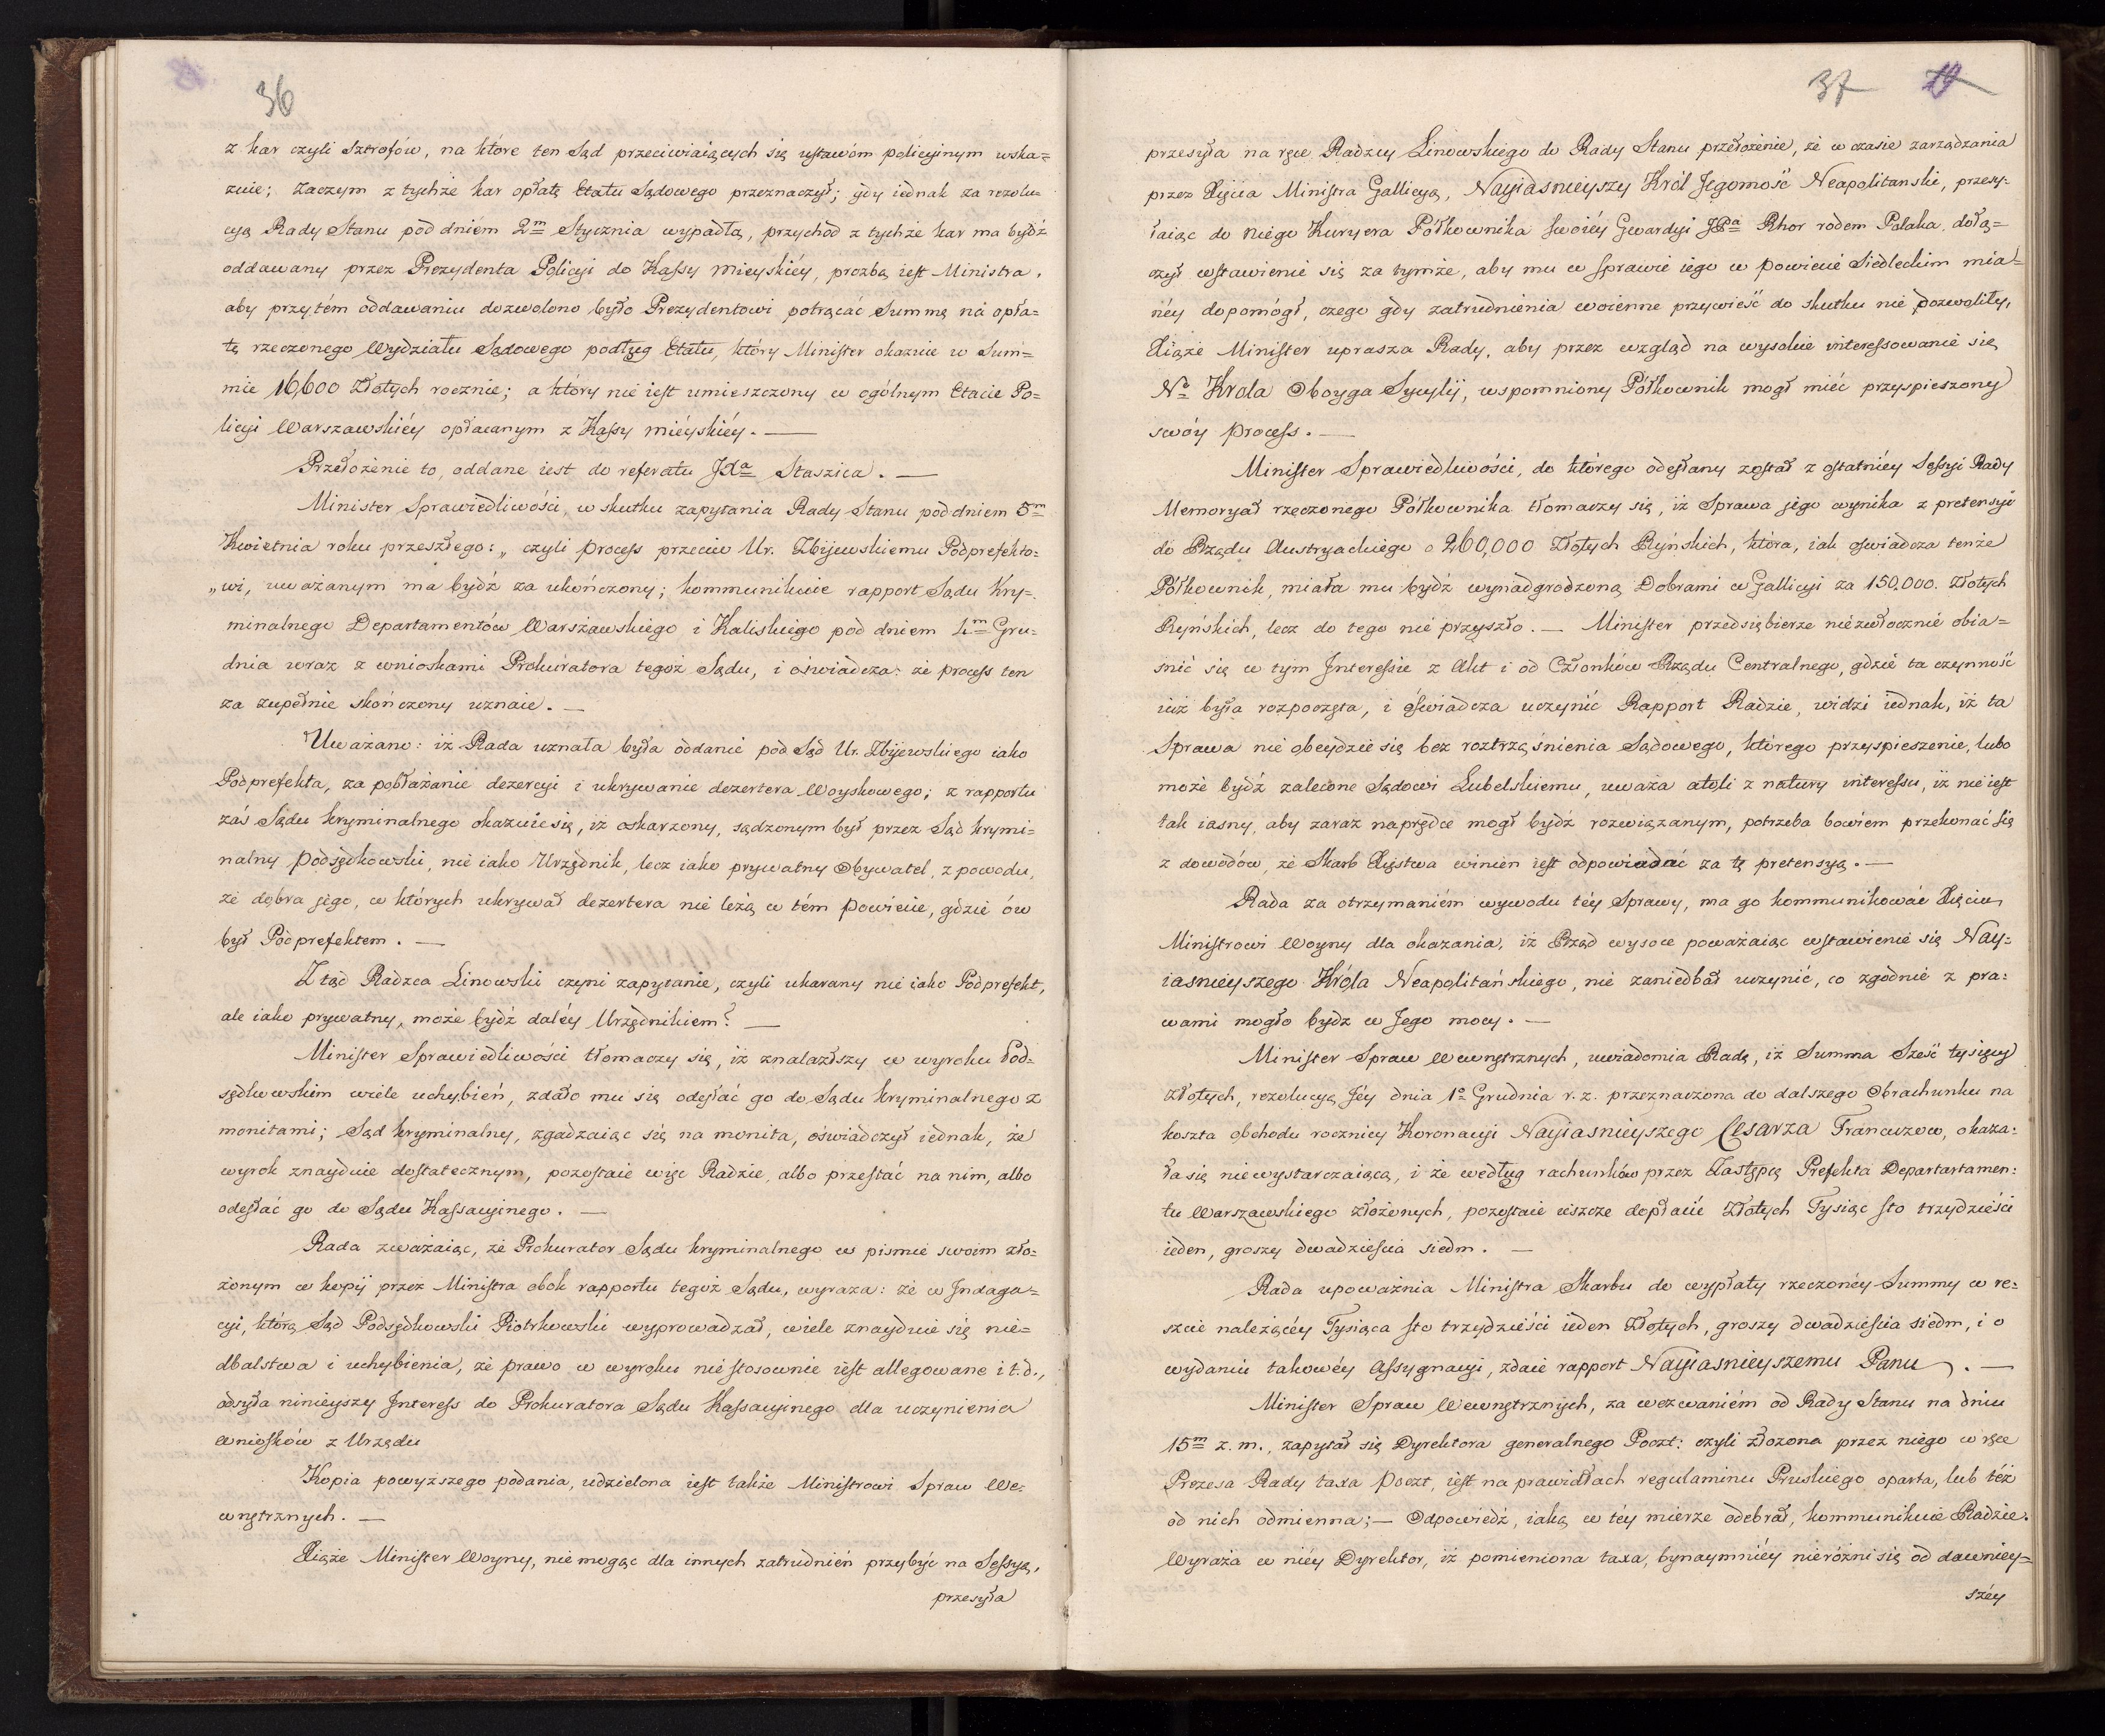 36
z kar czyli Sztrofów, na które ten Sąd przeciwiaiących się ustawom policyinym wska=
zuie; Zaczym z tychże kar opłatę Etatu Sądowego przeznaczył; gdy iednak za rezolu=
cyą Rady Stanu pod dniem 2m Stycznia wypadłą, przychód z tychże kar ma bydź
oddawany przez Prezydenta Policyi do Kassy mieyskiéy, prozbą iest Ministra,
aby przytém oddawaniu dozwolono było Prezydentowi potrącać Summę na opła=
tę rzeczonego Wydziału Sądowego podług Etatu, który Minister okazuie w Sum=
mie 16,600 Złotych rocznie; a który nie iest umieszczony w ogólnym Etacie Po=
licyi Warszawskiéy opłacanym z Kassy miéyskiéy. —
Przełożenie to, oddane iest do referatu JXa Staszica. —
Minister Sprawiedliwości, w skutku zapytania Rady Stanu pod dniem 5m
Kwietnia roku przeszłego: „ czyli process przeciw Ur. Zbijewskiemu Podprefekto=
„wi, uważanym ma bydź za ukończony; kommunikuie rapport Sądu Kry=
minalnego Departamentów Warszawskiego i Kaliskiego pod dniem 4m Gru=
dnia wraz z wnioskami Prokuratora tegoż Sądu, i oświadcza: że process ten
za zupełnie skończony uznaie. —
Uważano: iż Rada uznała była oddanie pod Sąd Ur. Zbijewskiego iako
Podprefekta, za pobłażanie dezercyi i ukrywanie dezertera Woyskowego; z rapportu
zaś Sądu kryminalnego okazuie się, iż oskarzony, sądzonym był przez Sąd krymi=
nalny Podsędkowski, nie iako Urzędnik, lecz iako prywatny Obywatel, z powodu,
że dobra jego, w których ukrywał dezertera nie leżą w tém Powiecie, gdzie ów
był Podprefektem. —
Ztąd Radzca Linowski czyni zapytanie, czyli ukarany nie iako Podprefekt,
ale iako prywatny, może bydź daléy Urzędnikiem? —
Minister Sprawiedliwości tłomaczy się, iż znalazłszy w wyroku Pod=
sędkowskim wiele uchybień, zdało mu się odesłać go do Sądu kryminalnego z
monitami; Sąd kryminalny, zgadzaiąc się na monita, oświadczył iednak, że
wyrok znayduie dostatecznym, pozostaie więc Radzie, albo przestać na nim, albo
odesłać go do Sądu Kassacyinego. —
Rada zważaiąc, że Prokurator Sądu kryminalnego w pismie swoim zło=
żonym w kopij przez Ministra obok rapportu tegoż Sądu, wyraza: że w Indaga=
cyi, którą Sąd Podsędkowski Piotrkowski wyprowadzał, wiele znayduie się nie=
dbalstwa i uchybienia, że prawo w wyroku nie stosownie iest allegowane i t.d.,
odsyła ninieyszy Interess do Prokuratora Sądu Kassacyinego dla uczynienia
wniosków z Urzędu
Kopia powyższego podania, udzielona iest także Ministrowi Spraw We=
wnętrznych. —
Xiąże Minister Woyny, nie mogąc dla innych zatrudnień przybyć na Sessyą,
przesyła
37 19
przesyła na ręce Radzcy Linowskiego do Rady Stanu przełożenie, że w czasie zarządzania
przez Xięcia Ministra Gallicyą, Nayiasnieyszy Król Jegomość Neapolitanski, przesy=
łaiąc do niego Kuryera Półkownika swoiéy Gwardyi JPa Rhor rodem Polaka, dołą=
czył wstawienie się za tymże, aby mu w sprawie iego w Powiecie Siedleckim mia=
néy dopomógł, czego gdy zatrudnienia woienne przywieść do skutku nie dozwoliły,
Xiąże Minister uprasza Rady, aby przez wzgląd na wysokie interessowanie się
No Krola Oboyga Sycylij, wspomniony Półkownik mogł mieć przyspieszony
swóy process. —
Minister Sprawiedliwości, do którego odesłany został z ostatniéy Sessyi Rady
Memoryał rzeczonego Półkownika tłomaczy się, iż Sprawa jego wynika z pretensyi
do Rządu Austryackiego o 260,000 Złotych Ryńskich, która, iak oświadcza tenże
Półkownik, miała mu bydź wynadgrodzoną Dobrami w Gallicyi za 150,000. Złotych
Ryńskich, lecz do tego nie przyszło. — Minister przedsiębierze niezwłocznie obia=
snić się w tym Interessie z Akt i od Członków Rządu Centralnego, gdzie ta czynność
iuż była rozpoczęta, i oświadcza uczynić Rapport Radzie, widzi iednak, iż ta
Sprawa nie obeydzie się bez roztrząśnienia Sądowego, którego przyspieszenie, lubo
może bydź zalecone Sądowi Lubelskiemu, uważa atoli z natury interessu, iż nie iest
tak iasny, aby zaraz naprędce mogł bydź rozwiązanym, potrzeba bowiem przekonać się
z dowodów, że Skarb Xięstwa winien iest odpowiadać za tę pretensyą. —
Rada za otrzymaniém wywodu téy Sprawy, ma go kommunikować Xięciu
Ministrowi Woyny dla okazania, iż Rząd wysoce poważaiąc wstawienie się Nay=
iasnieyszego Króla Neapolitańskiego, nie zaniedbał uczynić, co zgodnie z pra=
wami mogło bydz w Jego mocy. —
Minister Spraw Wewnętrznych, uwiadomia Radę, iż Summa Sześć tysięcy
Złotych, rezolucyą Jéy dnia 1o Grudnia r. z. przeznaczona do dalszego Obrachunku na
koszta obchodu rocznicy Koronacyi Nayiasnieyszego Cesarza Francuzow, okaza=
ła się niewystarczaiącą, i że według rachunków przez Zastępcę Prefekta Departartamen=
tu Warszawskiego złożonych, pozostaie ieszcze dopłacić Złotych Tysiąc sto trzydzieści
ieden, groszy dwadzieścia siedm. —
Rada upoważnia Ministra Skarbu do wypłaty rzeczonéy Summy w re=
szcie należącéy Tysiąca sto trzydzieści ieden Złotych, groszy dwadzieścia siedm, i o
wydaniu takowéy Assygnacyi, zdaie rapport Nayiasnieyszemu Panu. —
Minister Spraw Wewnętrznych, za wezwaniém od Rady Stanu na dniu
15m z. m., zapytał się Dyrektora generalnego Poczt: czyli złożona przez niego w ręce
Prezesa Rady taxa Poczt, iest na prawidłach regulaminu Pruskiego oparta, lub téż
od nich odmienna; — Odpowiedź, iaką w téy mierze odebrał, kommunikuie Radzie.
Wyraża w niéy Dyrektor, iż pomieniona taxa, bynaymniéy nieróżni się od dawniey=
széy